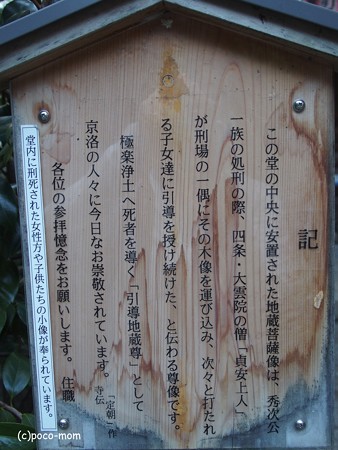 記
この堂の中央に安置された地蔵菩薩像は、秀次公
一族の処刑の際、四条・大雲院の僧「貞安上人」
が刑場の一偶にその木像を運び込み、次々と打たれ
る子女達に引導を授け続けた、と伝わる尊像です。
極楽浄土へ死者を導く「引導地蔵尊」として
「定朝」作
寺伝
京洛の人々に今日なお崇敬されています。
各位の参拝憶念をお願いします。 住職
堂内に刑死された女性方や子供たちの小像が奉られています。
(c)poco-mom